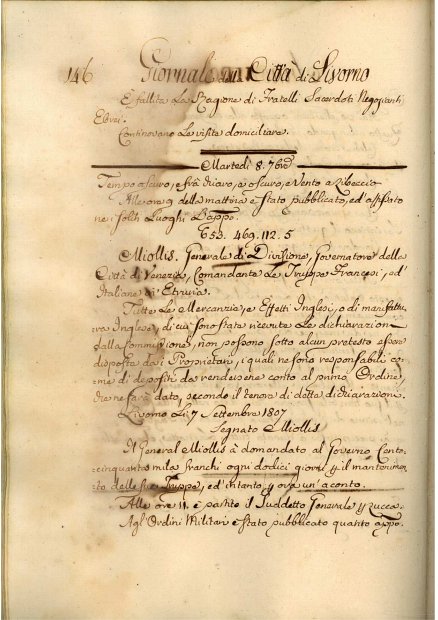 146 Giornale della Città di Livorno
È fallita La Ragione di Fratelli Sacerdoti Negozianti
Ebrei.
Continovano Le visite domiciliare.
Martedì 8. 7bre
Tempo oscuro, e frà diavo, e oscuro, e Vento a Libeccio
Alle ore 9 della mattina è stato pubblicato, ed' affissato
nei soliti Luoghi L'appo.
653. 469. 112. 5
Miollis. Generale di Divisione, Governatore della
Città di Venezia, Comandante Le Truppe Francesi, ed'
Italiane in Etruria.
Tutte Le Mercanzie, e Effetti Inglesi, o di manifattu
ra Inglese, di cui sono state ricevute Le dichiarazioni
dalla Commissione, non possono sotto alcun pretesto essere
disposte dai Proprietari, i quali ne sono responsabili co
me di depositi da rendersene conto al primo Ordine,
che ne sarà dato, secondo il tenore di dette dichiarazioni.
Livorno Li 7 Settembre 1807
Segnato Miollis
Il General Miollis à domandato al Governo Cento
cinquanta mila franchi ogni dodici giorni p il mantenimen
to delle sue Truppe, ed' intanto p ora un' aconto.
Alle ore 11. è partito il Suddetto Generale p Lucca.
Agl' Ordini Militari è stato pubblicato quanto appo.